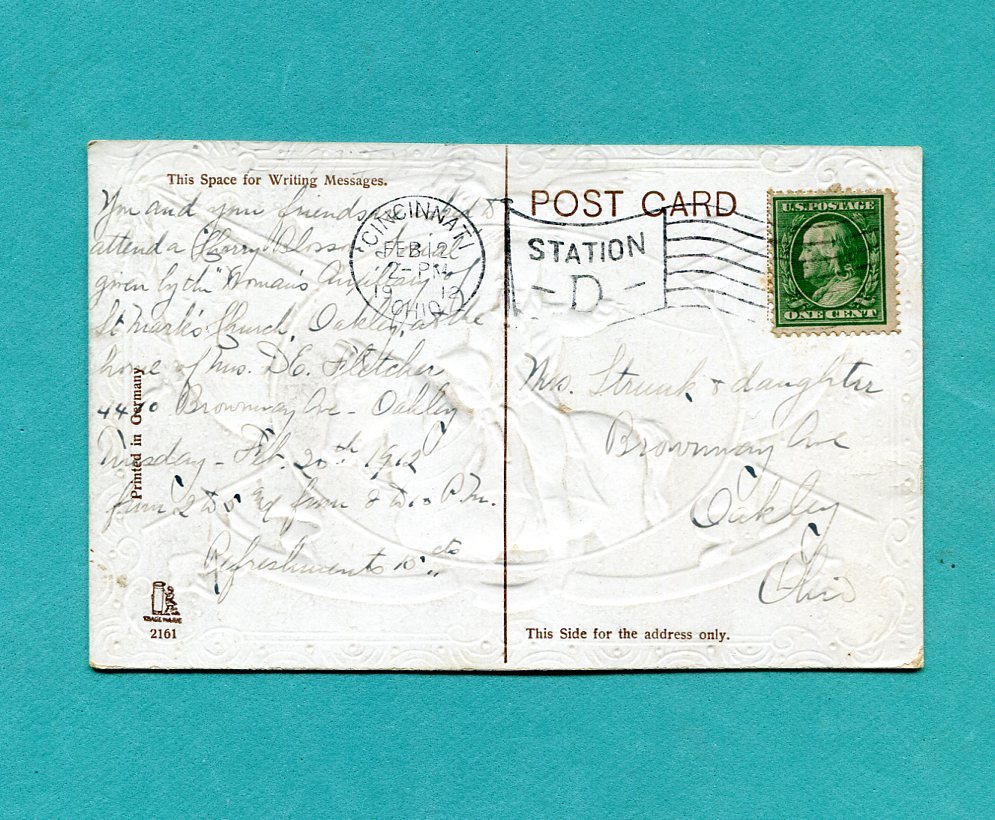 This Space for Writing Messages.
You and your friends are
attend a Cherry Blossom
given by the "Woman's Auxiliary of
St Mark's Church, Oakley, at the
home of Mrs. D.E. Fletcher
4410 Brownway Ave - Oakley
Tuesday - Feb. 20th 1912
from 2 to 5 & from 8 to P.M.
Refreshments 10 cts
Printed in Germany
TRADE MARK
2161
CINCINNATI
FEB 12
2-PM
1912
OHIO
POST CARD
STATION
D
U.S. POSTAGE
ONE CENT
Mrs. Strunk & daughter
Brownway Ave
Oakley
Ohio
This Side for the address only.